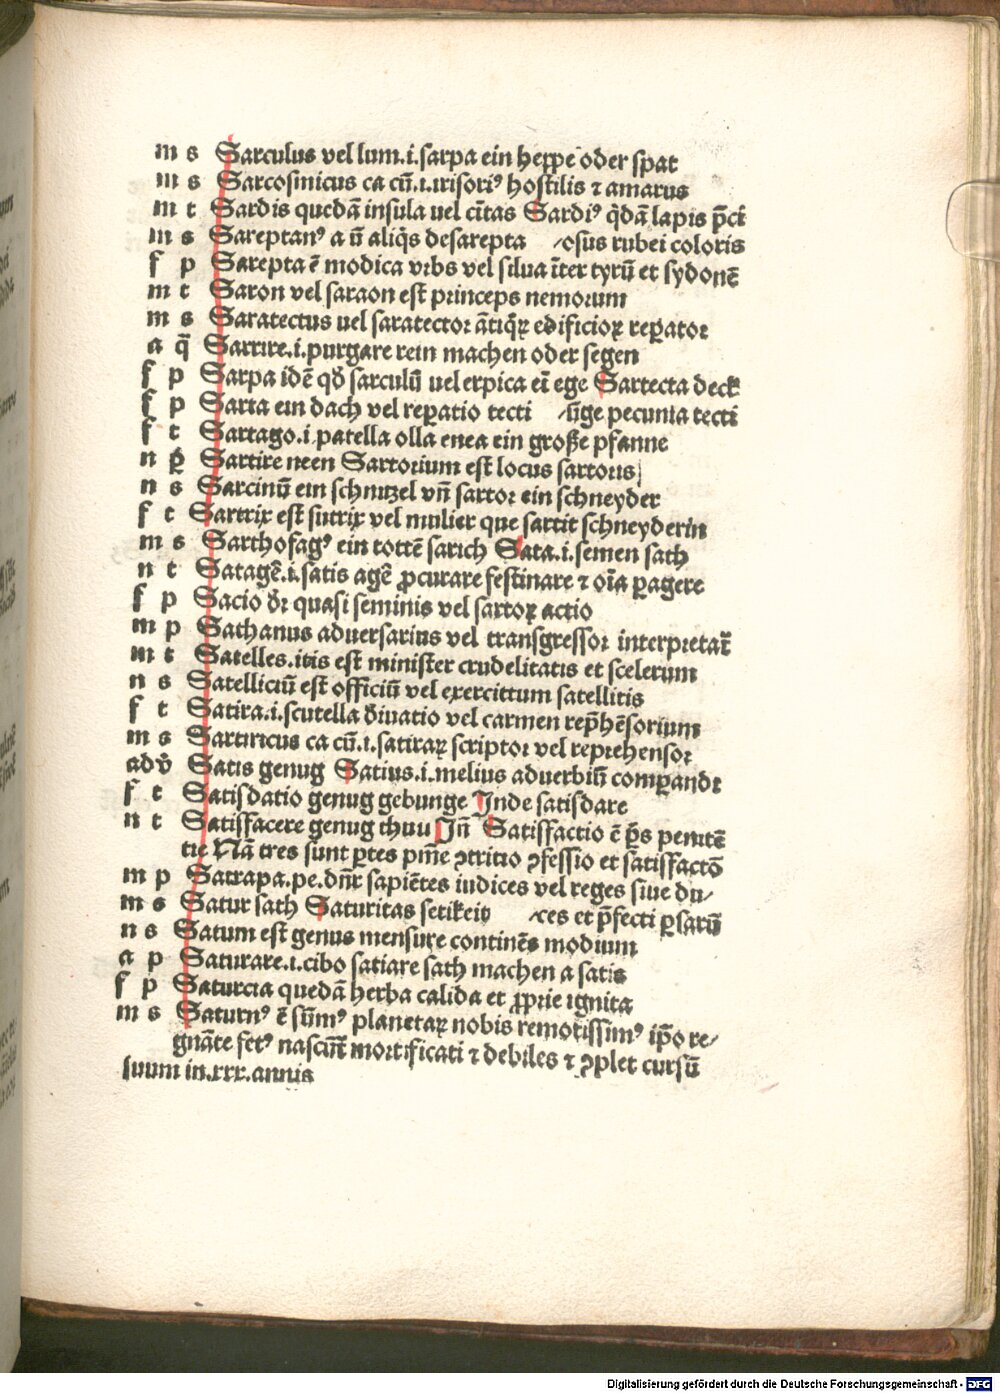 m s Sarculus vel lum.i.sarpa ein heppe oder spat
m s Sarcosmicus ca cū.i.irisoriꝰ hostilis ⁊ amarus
m t Sardis quedā insula uel cītas Sardiꝰ q̇dā lapis p̄ci
m s Sareptanꝰ a ū aliq̇s desarepta ⸝osus rubei coloris
f p Sarepta ē modica vrbs vel silua īter tyrū et sydonē
m t Saron vel saraon est princeps nemorum
m s Saratectus uel saratector ātiq̇ꝝ edificioꝝ reꝑator
a q̄ Sarrire.i.purgare rein machen oder segen
f p Sarpa idē qð sarculū uel erpica eī ege Sartecta deck
f p Sarta ein dach vel reꝑatio tecti ⸝ūge pecunia tecti
f t Sartago.i.patella olla enea ein große pfanne
n Sartire neen Sartorium est locus sartoris
n s Sarcinū ein schnitzel vn̄ sartor ein schneyder
f t Sartrix est sutrix vel mulier que sartit schneyderin
m s Sarthofagꝰ ein tottē sarich Sata.i.semen sath
n t Satagē.i.satis agē ꝓcurare festinare ⁊ oīa ꝑagere
f p Sacio ðr quasi seminis vel sartoꝝ actio
m p Sathanus aduersarius vel transgressor interpretat̄
m t Satelles.itis est minister crudelitatis et scelerum
n s Satelliciū est officiū vel exercittum satellitis
f t Satira.i.scutella ðiuatio vel carmen rep̄hēsorium
m s Sartiricus ca cū.i.satiraꝝ scriptor vel reprehensor
adv̄ Satis genug Satius.i.melius aduerbiū comꝑandi
f t Satisdatio genug gebunge Inde satisdare
n t Satisfacere genug thuu In̄ Satisfactio ē ꝑs penitē
tie Nā tres sunt ꝑtes pn̄ie ꝯtritio ꝯfessio et satisfactō
m p Satrapa.pe.dn̄r sapiētes iudices vel reges siue du⸗
m s Satur sath Saturitas setikeit ⸝ces et p̄fecti ꝑsarū
n s Satum est genus mensure continēs modium
a p Saturare.i.cibo satiare sath machen a satis
f p Saturcia quedā herba calida et ꝓprie ignita
m s Saturnꝰ ē sūmꝰ planetaꝝ nobis remotissimꝰ ip̄o re⸗
gnāte fetꝰ nascūt̄ mortificati ⁊ debiles ⁊ ꝯplet cursū
suum in.xxx.annis
Digitalisierung gefördert durch die Deutsche Forschungsgemeinschaft - DFG